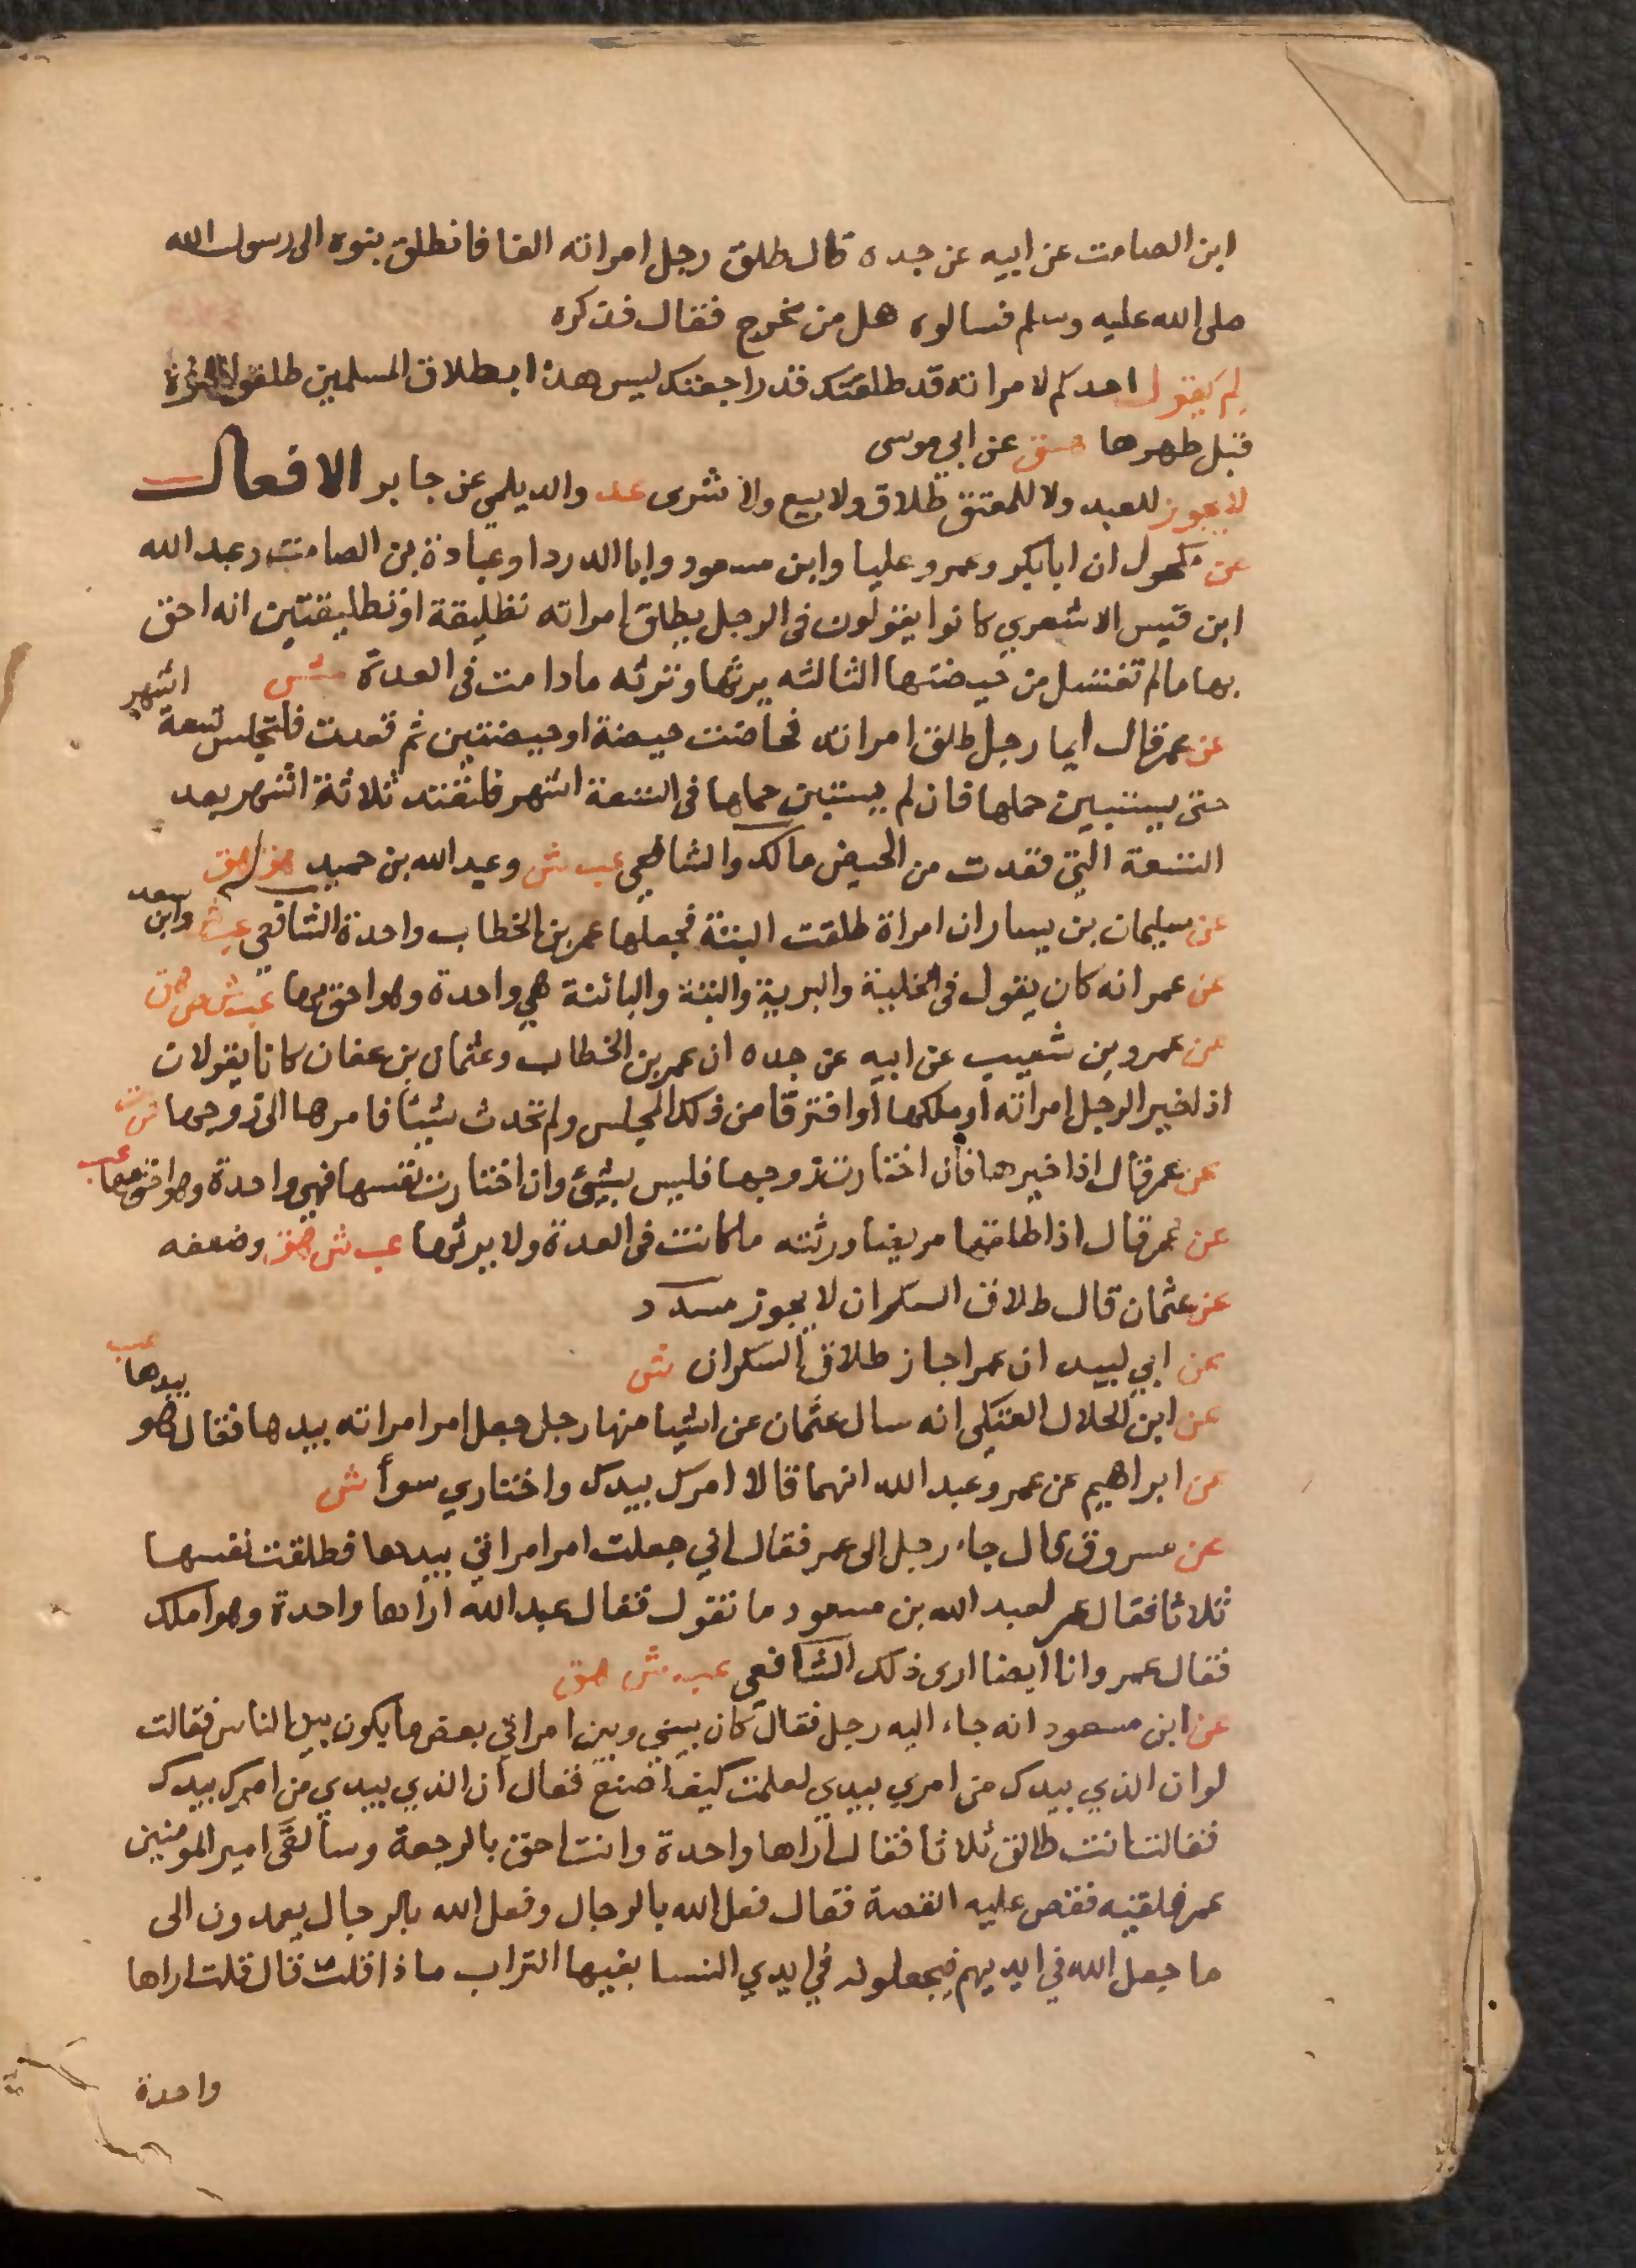 ابن الصامت عن ابيه عن جده قال طلق رجل امراته الفا فانطلق بنوه الى رسول الله
صلى الله عليه وسلم فسالوه هل من مخرج فقال فذكره
لم يقول احدكم لامراته قد طلقتك قد راجعتك ليس هذا بطلاق المسلمين طلقوا المراة
قبل طهرها هق عن ابي موسى
لا يجوز للعبد ولا للمعتق طلاق ولا بيع ولا شرى عد والديلمي عن جابر الافعال
عن مكحول ان ابا بكر وعمر وعليا وابن مسعود وابا الدردا وعبادة بن الصامت وعبد الله
ابن قيس الاشعري كانوا يقولون فى الرجل يطلق امراته تطليقة او تطليقتين انه احق
بها ما لم تغتسل من حيضتها الثالثه يرثها وترثه ما دامت فى العدة ش
عن عمر قال ايما رجل طلق امراته فحاضت حيضة او حيضتين ثم قعدت فلتجلس تسعة اشهر
حتى يستبين حملها فان لم يستبين حملها فى التسعة اشهر فلتعتد ثلاثة اشهر بعد
التسعة التى قعدت من الحيض مالك والشافعي عب ش وعبد الله بن حميد هق
عن سليمان بن يسار ان امراة طلقت البتة فجعلها عمر بن الخطاب واحدة الشافعي عب ش وابن سعد
عن عمر انه كان يقول فى الخلية والبرية والبتة والبائنة هي واحدة وهو احق بها عب ش ص هق
عن عمرو بن شعيب عن ابيه عن جده ان عمر بن الخطاب وعثمان بن عفان كانا يقولان
اذا خير الرجل امراته او ملكها او افترقا من ذلك المجلس ولم تحدث شيئا فامرها الى زوجها ش
عن عمر قال اذا خيرها فان اختارت زوجها فليس بشيئ وان اختارت نفسها فهي واحدة وهو احق بها عب
عن عمر قال اذا طلقها مريضا ورثته ما كانت فى العدة ولا يرثها عب ش هق وضعفه
عن عثمان قال طلاق السكران لا يجوز مسدد
عن ابي لبيد ان عمر اجاز طلاق السكران ش
عن ابن الحلال العتكي انه سال عثمان عن اشيا منها رجل جعل امر امراته بيدها فقال هو بيدها عب
عن ابراهيم عن عمر وعبد الله انهما قالا امرك بيدك واختاري سوأ ش
عن مسروق قال جاء رجل الى عمر فقال اني جعلت امر امراتي بيدها فطلقت نفسها
ثلاثا فقال عمر لعبد الله بن مسعود ما تقول فقال عبد الله اراها واحدة وهو املك
فقال عمر وانا ايضا ارى ذلك الشافعي عب ش هق
عن ابن مسعود انه جاء اليه رجل فقال كان بيني وبين امراتي بعض ما يكون بين الناس فقالت
لو ان الذي بيدك من امري بيدي لعلمت كيف اصنع فقال ان الذي بيدي من امرك بيدك
فقالت انت طالق ثلاثا فقال اراها واحدة وانت احق بالرجعة وسألقى امير المومنين
عمر فلقيه فقص عليه القصة فقال فعل الله بالرجال وفعل الله بالرجال يعمدون الى
ما جعل الله في ايديهم فيجعلونه في ايدي النسا بفيها التراب ما ذا قلت قال قلت اراها
واحدة